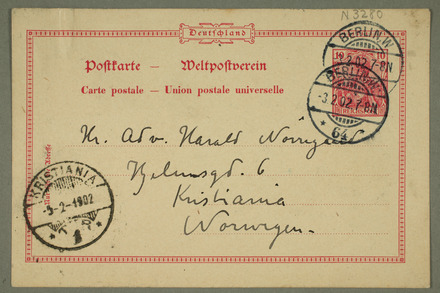 N 3280
Deutschland
Postkarte — Weltpostverein
Carte postale — Union postale universelle
10 10
BERLIN.W
2.02.7-8N
BERLIN.W
-3.2.02.7-8N
* 64
Hr. Adv. Harald
Hjelmsgd. 6
Kristiania
Norwegen.
KRISTIANIA
-5-2-1902
1